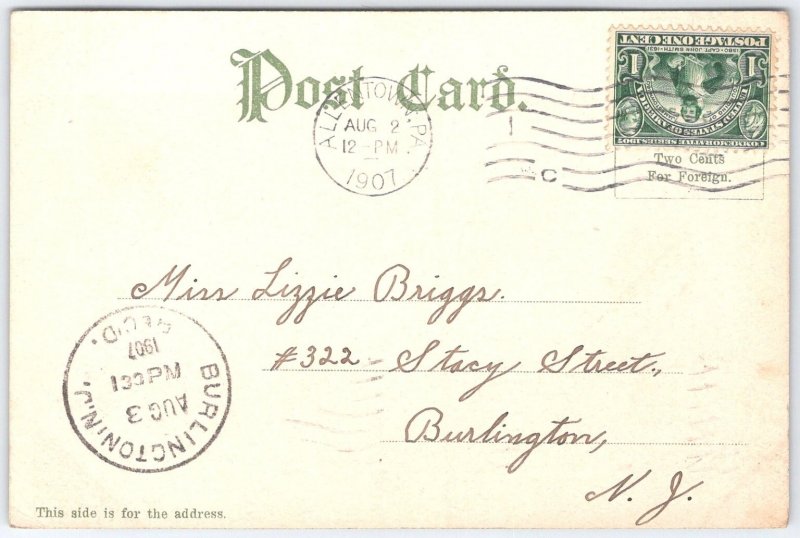 Post Card.
ALLENTOWN, PA.
AUG 2
12-PM
1907
C
POSTAGE ONE CENT
1580 · CAPT. JOHN SMITH · 1631
1 1
UNITED STATES OF AMERICA
COMMEMORATIVE SERIES, 1907
Two Cents
For Foreign.
Miss Lizzie Briggs.
#322 Stacy Street,
Burlington,
N. J.
BURLINGTON, N.J.
AUG 3
130 PM
1907
REC'D.
This side is for the address.